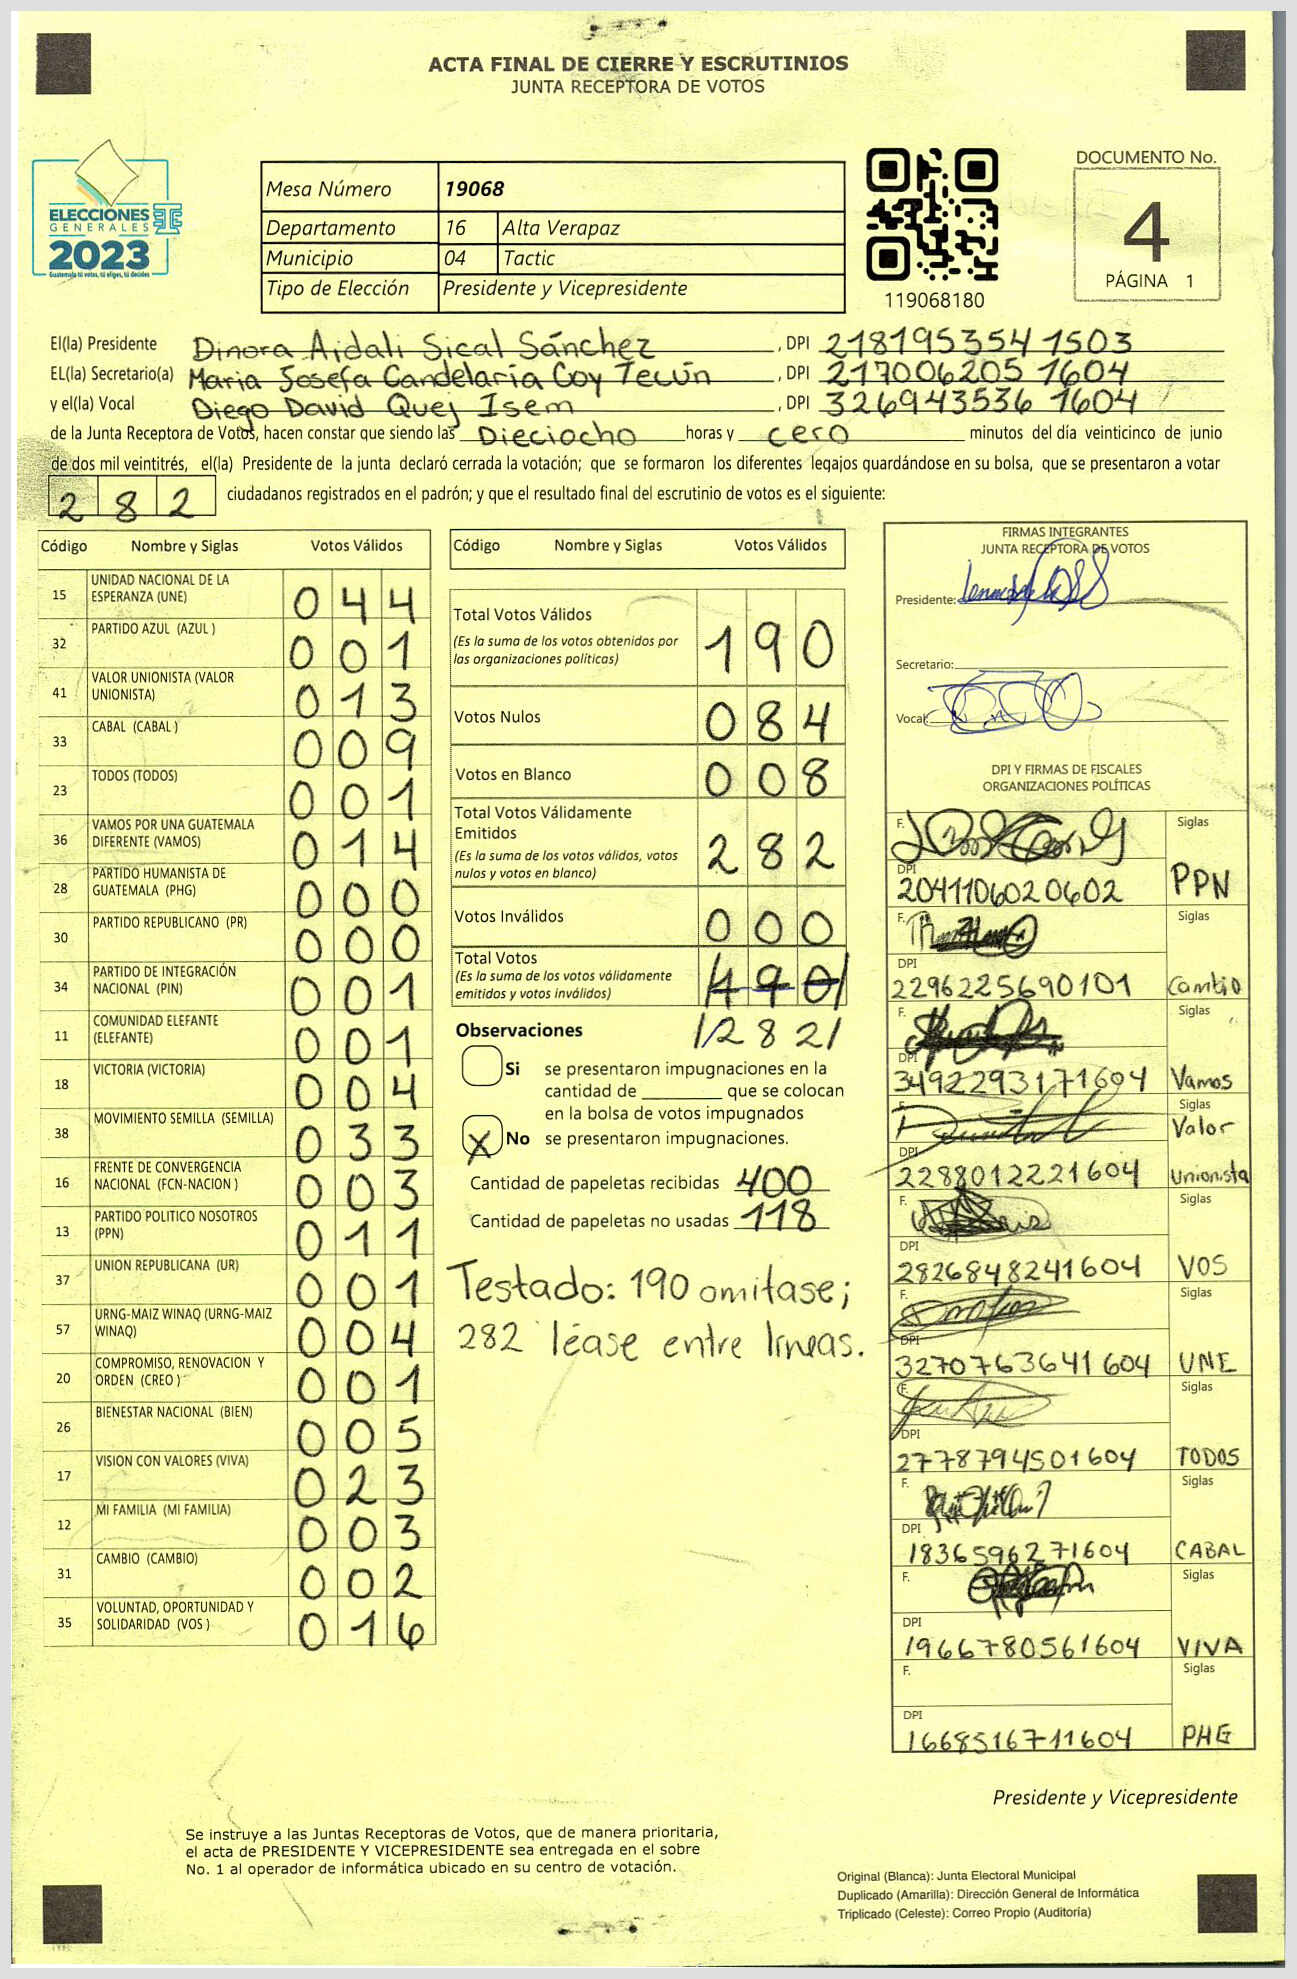 ACTA FINAL DE CIERRE Y ESCRUTINIOS
JUNTA RECEPTORA DE VOTOS
ELECCIONES
GENERALES
2023
Guatemala tú votas, tú eliges, tú decides
Mesa Número 19068
Departamento 16 Alta Verapaz
Municipio 04 Tactic
Tipo de Elección Presidente y Vicepresidente
119068180
DOCUMENTO No.
4
PÁGINA 1
El(la) Presidente Dinora Aidali Sical Sánchez, DPI 218195354 1503
EL(la) Secretario(a) Maria Josefa Candelaria Coy Tecún, DPI 217006205 1604
y el(la) Vocal Diego David Quej Isem, DPI 326943536 1604
de la Junta Receptora de Votos, hacen constar que siendo las Dieciocho horas y cero minutos del día veinticinco de junio
de dos mil veintitrés, el(la) Presidente de la junta declaró cerrada la votación; que se formaron los diferentes legajos guardándose en su bolsa, que se presentaron a votar
282 ciudadanos registrados en el padrón; y que el resultado final del escrutinio de votos es el siguiente:
Código Nombre y Siglas Votos Válidos
15 UNIDAD NACIONAL DE LA ESPERANZA (UNE) 044
32 PARTIDO AZUL (AZUL ) 001
41 VALOR UNIONISTA (VALOR UNIONISTA) 013
33 CABAL (CABAL ) 009
23 TODOS (TODOS) 001
36 VAMOS POR UNA GUATEMALA DIFERENTE (VAMOS) 014
28 PARTIDO HUMANISTA DE GUATEMALA (PHG) 000
30 PARTIDO REPUBLICANO (PR) 000
34 PARTIDO DE INTEGRACIÓN NACIONAL (PIN) 001
11 COMUNIDAD ELEFANTE (ELEFANTE) 001
18 VICTORIA (VICTORIA) 004
38 MOVIMIENTO SEMILLA (SEMILLA) 033
16 FRENTE DE CONVERGENCIA NACIONAL (FCN-NACION ) 003
13 PARTIDO POLITICO NOSOTROS (PPN) 011
37 UNION REPUBLICANA (UR) 001
57 URNG-MAIZ WINAQ (URNG-MAIZ WINAQ) 004
20 COMPROMISO, RENOVACION Y ORDEN (CREO ) 001
26 BIENESTAR NACIONAL (BIEN) 005
17 VISION CON VALORES (VIVA) 023
12 MI FAMILIA (MI FAMILIA) 003
31 CAMBIO (CAMBIO) 002
35 VOLUNTAD, OPORTUNIDAD Y SOLIDARIDAD (VOS ) 016
Código Nombre y Siglas Votos Válidos
Total Votos Válidos 190
(Es la suma de los votos obtenidos por
las organizaciones politicas)
Votos Nulos 084
Votos en Blanco 008
Total Votos Válidamente
Emitidos 282
(Es la suma de los votos válidos, votos
nulos y votos en blanco)
Votos Inválidos 000
Total Votos 190
(Es la suma de los votos válidamente
emitidos y votos inválidos)
Observaciones /282/
Si se presentaron impugnaciones en la
cantidad de ________ que se colocan
en la bolsa de votos impugnados
X No se presentaron impugnaciones.
Cantidad de papeletas recibidas 400
Cantidad de papeletas no usadas 118
Testado: 190 omitase;
282 léase entre líneas.
FIRMAS INTEGRANTES
JUNTA RECEPTORA DE VOTOS
Presidente:
Secretario:
Vocal:
DPI Y FIRMAS DE FISCALES
ORGANIZACIONES POLÍTICAS
F. Siglas
DPI 2041106020602 PPN
F. Siglas
DPI 2296225690101 Cambio
F. Siglas
DPI 3492293171604 Vamos
F. Siglas
DPI 2288012221604 Valor Unionista
F. Siglas
DPI 2826848241604 VOS
F. Siglas
DPI 3270763641604 UNE
F. Siglas
DPI 2778794501604 TODOS
F. Siglas
DPI 1836596271604 CABAL
F. Siglas
DPI 1966780561604 VIVA
F. Siglas
DPI 1668516711604 PHG
Presidente y Vicepresidente
Se instruye a las Juntas Receptoras de Votos, que de manera prioritaria,
el acta de PRESIDENTE Y VICEPRESIDENTE sea entregada en el sobre
No. 1 al operador de informática ubicado en su centro de votación.
Original (Blanca): Junta Electoral Municipal
Duplicado (Amarilla): Dirección General de Informática
Triplicado (Celeste): Correo Propio (Auditoría)